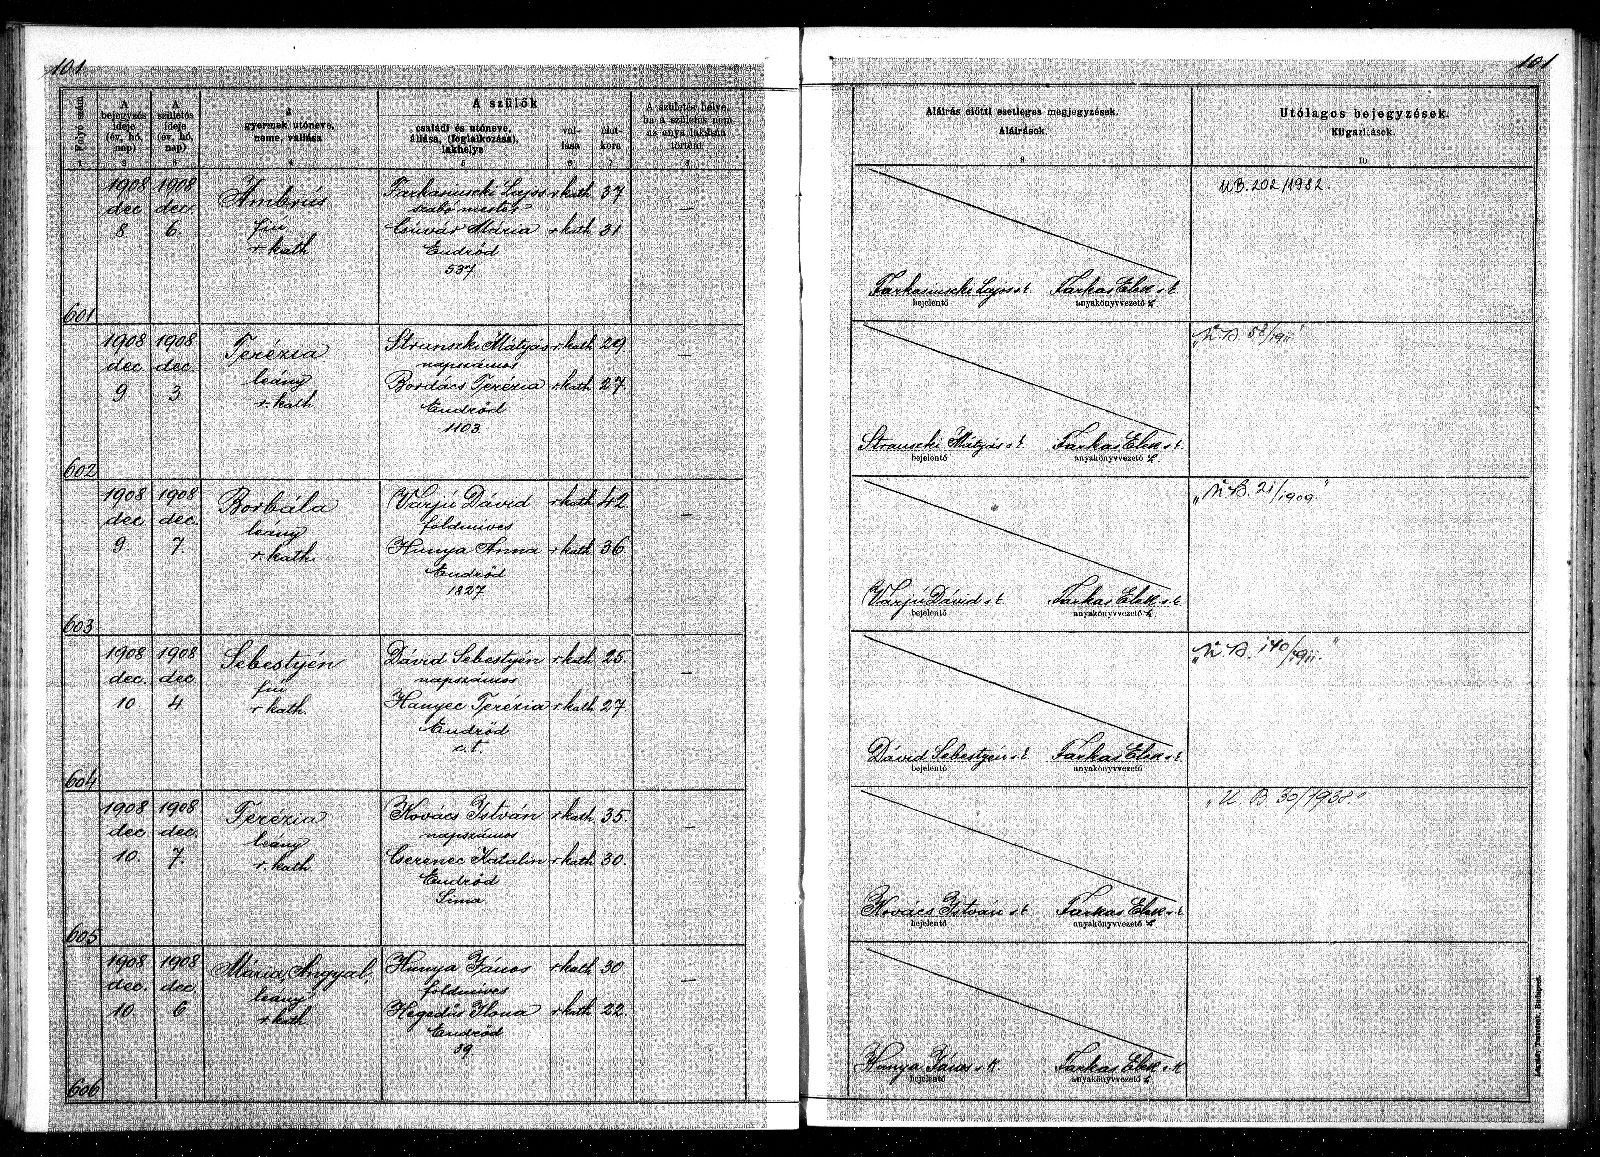 101
101
Folyó szám
A bejegyzés ideje (év, hó, nap)
A születés ideje (év, hó, nap)
a gyermek utóneve, neme, vallása
A szülők
családi és utóneve, állása, (foglalkozása), lakhelye
val-lása
élet-kora
A születés helye, ha a szülőknek nem az anya lakhelyén történt
Aláírás előtti esetleges megjegyzések.
Aláírások.
Utólagos bejegyzések.
Kiigazítások.
1 2 3 4 5 6 7 8 9 10
601
1908 dec 8
1908 dec. 6.
Ambrús
fiú
r. kath
Farkasinszki Lajos r. kath 37
szabó mester
Csúvár Mária r. kath 31
Endrőd
537
—
UB. 202/1982.
Farkasinszki Lajos s.k. Farkas Elek s.k.
bejelentő anyakönyvvezető h.
602
1908 dec 9
1908 dec. 3
Terézia
leány
r. kath
Strunszki Mátyás r. kath 29
napszámos
Bordács Terézia r. kath 27
Endrőd
1103
—
„U. B. 58/1911"
Strunszki Mátyás s.k. Farkas Elek s.k.
bejelentő anyakönyvvezető h.
603
1908 dec 9.
1908 dec. 7.
Borbála
leány
r. kath.
Varjú Dávid r. kath 42
földmíves
Hunya Anna r. kath 36
Endrőd
1827
—
„U. B. 21/1909"
Varjú Dávid s.k. Farkas Elek s.k.
bejelentő anyakönyvvezető h.
604
1908 dec. 10
1908 dec 4
Sebestyén
fiú
r. kath.
Dávid Sebestyén r. kath. 25.
napszámos
Hanyec Terézia r. kath 27
Endrőd
c.t.
—
„U. B. 140/1911."
Dávid Sebestyén s.k. Farkas Elek s.k.
bejelentő anyakönyvvezető
605
1908 dec 10.
1908 dec. 7.
Terézia
leány
r. kath.
Kovács István r. kath. 35.
napszámos
Cserenec Katalin r. kath 30.
Endrőd
Sima
—
„U. B. 30/1938."
Kovács István s.k. Farkas Elek s.k.
bejelentő anyakönyvvezető h.
606
1908 dec. 10.
1908 dec 6
Mária, Angyal,
leány
r. kath
Hunya János r. kath 30
földmíves
Hegedűs Ilona r. kath 22.
Endrőd
39
—
Hunya János s.k. Farkas Elek s.k.
bejelentő anyakönyvvezető h.